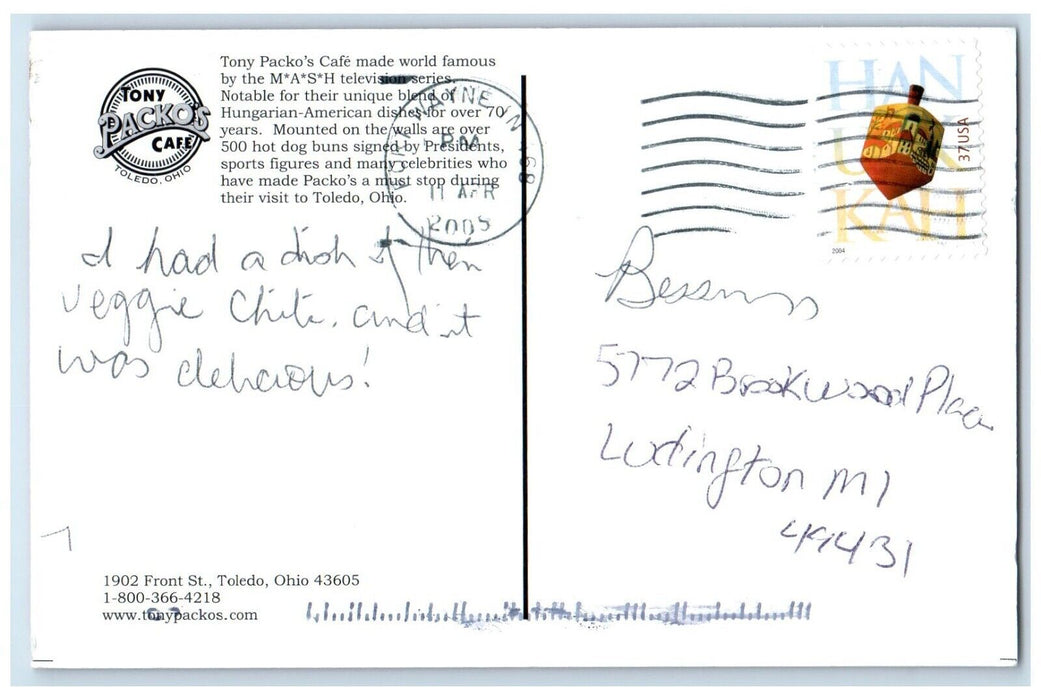 TONY
PACKO'S
CAFÉ
TOLEDO, OHIO
Tony Packo's Café made world famous
by the M*A*S*H television series.
Notable for their unique blend of
Hungarian-American dishes for over 70
years. Mounted on the walls are over
500 hot dog buns signed by Presidents,
sports figures and many celebrities who
have made Packo's a must stop during
their visit to Toledo, Ohio.
WAYNE IN 468
PM
11 APR
2005
HAN
UK
KAH
37 USA
2004
I had a dish of their
veggie Chili, and it
was delicious!
5772 Brookwood Place
Ludington MI
49431
1902 Front St., Toledo, Ohio 43605
1-800-366-4218
www.tonypackos.com